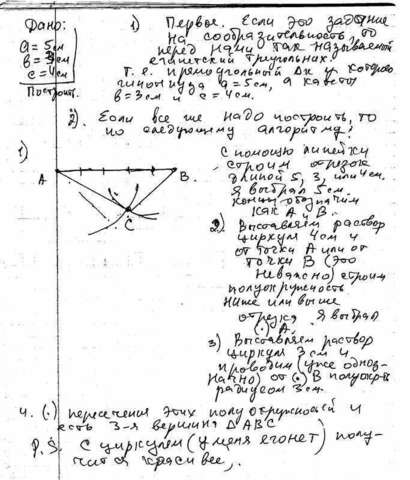 Дано:
a = 5 см
в = 3 см
c = 4 см
Построить.
1) Первое. Если это задание
на сообразительность, то
перед нами так называемый
египетский треугольник.
Т. е. прямоугольный Δк у которого
гипотенуза a = 5 см, а катеты
в = 3 см и c = 4 см.
2). Если все же надо построить, то
по следующему алгоритму:
1)
A
B.
C
С помощью линейки
строим отрезок
длиной 5, 3, или 4 см.
Я выбрал 5 см.
концы обозначим
как A и B.
2) Выставляем раствор
циркуля 4 см и
от точки A или от
точки B (это
неважно) строим
полуокружность
ниже или выше
отрезка. Я выбрал
(.) A.
3) Выставляем раствор
циркуля 3 см и
проводим (уже одноз-
начно) от (.) B полуокр-ть
радиусом 3 см.
4. (.) пересечения этих полуокружностей и
есть 3-я вершина Δ ABC
P.S. С циркулем (у меня его нет) полу-
чится красивее,.